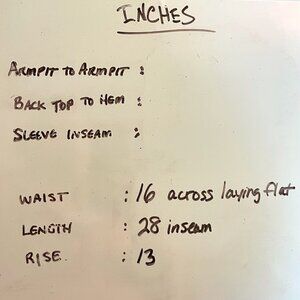 INCHES
ARMPIT TO ARMPIT :
BACK TOP TO HEM :
SLEEVE INSEAM :
WAIST : 16 across laying flat
LENGTH : 28 inseam
RISE : 13